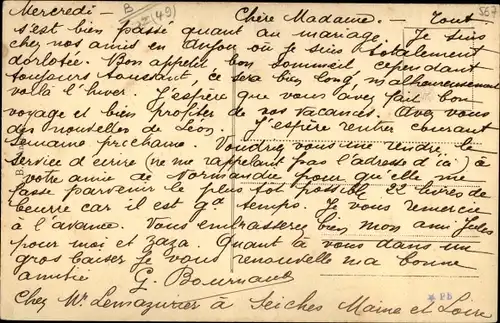 Mercredi - Chère Madame. - Tout
s'est bien passé quant au mariage. Je suis
chez nos amis en Anjou où je suis totalement
dorlotée. Bon appétit bon sommeil cependant
toujours toussant, ce sera bien long, malheureusement
voilà l'hiver. J'espère que vous avez fait bon
voyage et bien profiter de vos vacances. Avez vous
des nouvelles de Léon. J'espère rentrer courant
semaine prochaine. Voudrez vous me rendre le
service d'écrire (ne me rappelant pas l'adresse d'ici) à
votre amie de Normandie pour qu'elle me
fasse parvenir le plus tôt possible 22 livres de
beurre car il est gd temps. Je vous remercie
à l'avance. Vous embrasserez bien mon ami Jules
pour moi et Zaza. Quant à vous dans un
gros baiser je vous renouvelle ma bonne
amitié G. Bournault
Chez Mr Lemazurier à Seiches Maine et Loire